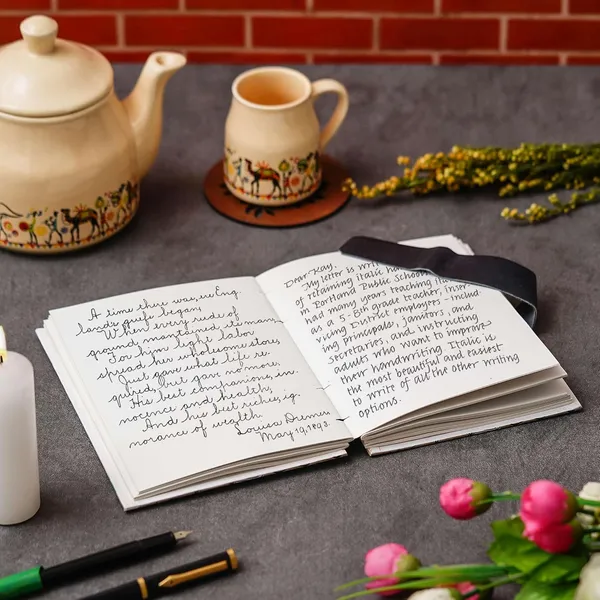 A time there was, ere Eng-
land's griefs began,
When every rood of
ground maintained its man;
For him light labor
spread her wholesome store,
Just gave what life re-
quired, but gave no more;
His best companions, in-
nocence and health;
And his best riches, ig-
norance of wealth.
Louisa
May 19, 1893.
Dear Kay,
My letter is
of retaining italic
in Portland Public Schools
had many years teaching
as a 5-8th grade teacher,
vicing District employees - includ-
ing principals, janitors, and
secretaries, and instructing
adults who want to improve
their handwriting. Italic is
the most beautiful and easiest
to write of all the other writing
options.